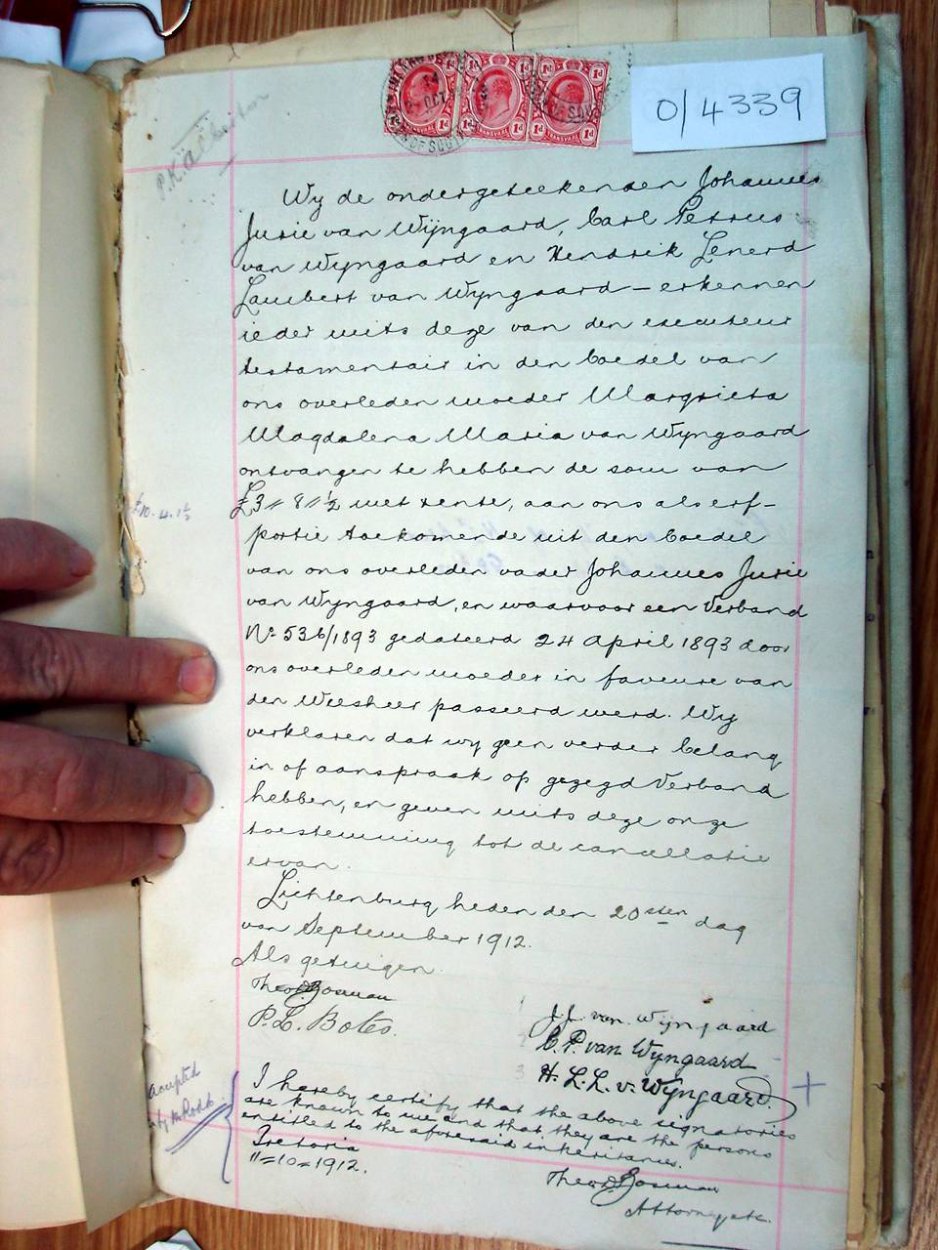 0/4339
1d 1d 1d 1d
TRANSVAAL
OCT
OF SOUTH
Wy de ondergeteekenden Johannes
Jurie van Wijngaard, Carl Petrus
van Wyngaard en Hendrik Lenerd
Lambert van Wyngaard – erkennen
ieder mits deze van den executeur
testamentair in den boedel van
ons overleden moeder Margrieta
Magdalena Maria van Wyngaard
ontvangen te hebben de som van
£3 " 8 " ½ met rente, aan ons als erf-
£10. 4. 1½
portie toekomende uit den boedel
van ons overleden vader Johannes Jurie
van Wyngaard, en waarvoor een Verband
No 536/1893 gedateerd 24 April 1893 door
ons overleden moeder in faveure van
den Weesheer passeerd werd. Wy
verklaren dat wy geen verder belang
in of aanspraak op gezegd Verband
hebben, en geven mits deze onze
toestemming tot de cancellatie
ervan.
Lichtenburg heden den 20sten dag
van September 1912.
Als getuigen.
Theod Bosman
P. L. Botes.
J. J. van Wijngaard
C. P. van Wyngaard
H. L. L. v. Wijngaard.
accepted
I hereby certify that the above signatories
are known to me and that they are the persons
entitled to the aforesaid inheritances.
Pretoria
11=10=1912.
Theod Bosman
Attorney etc.